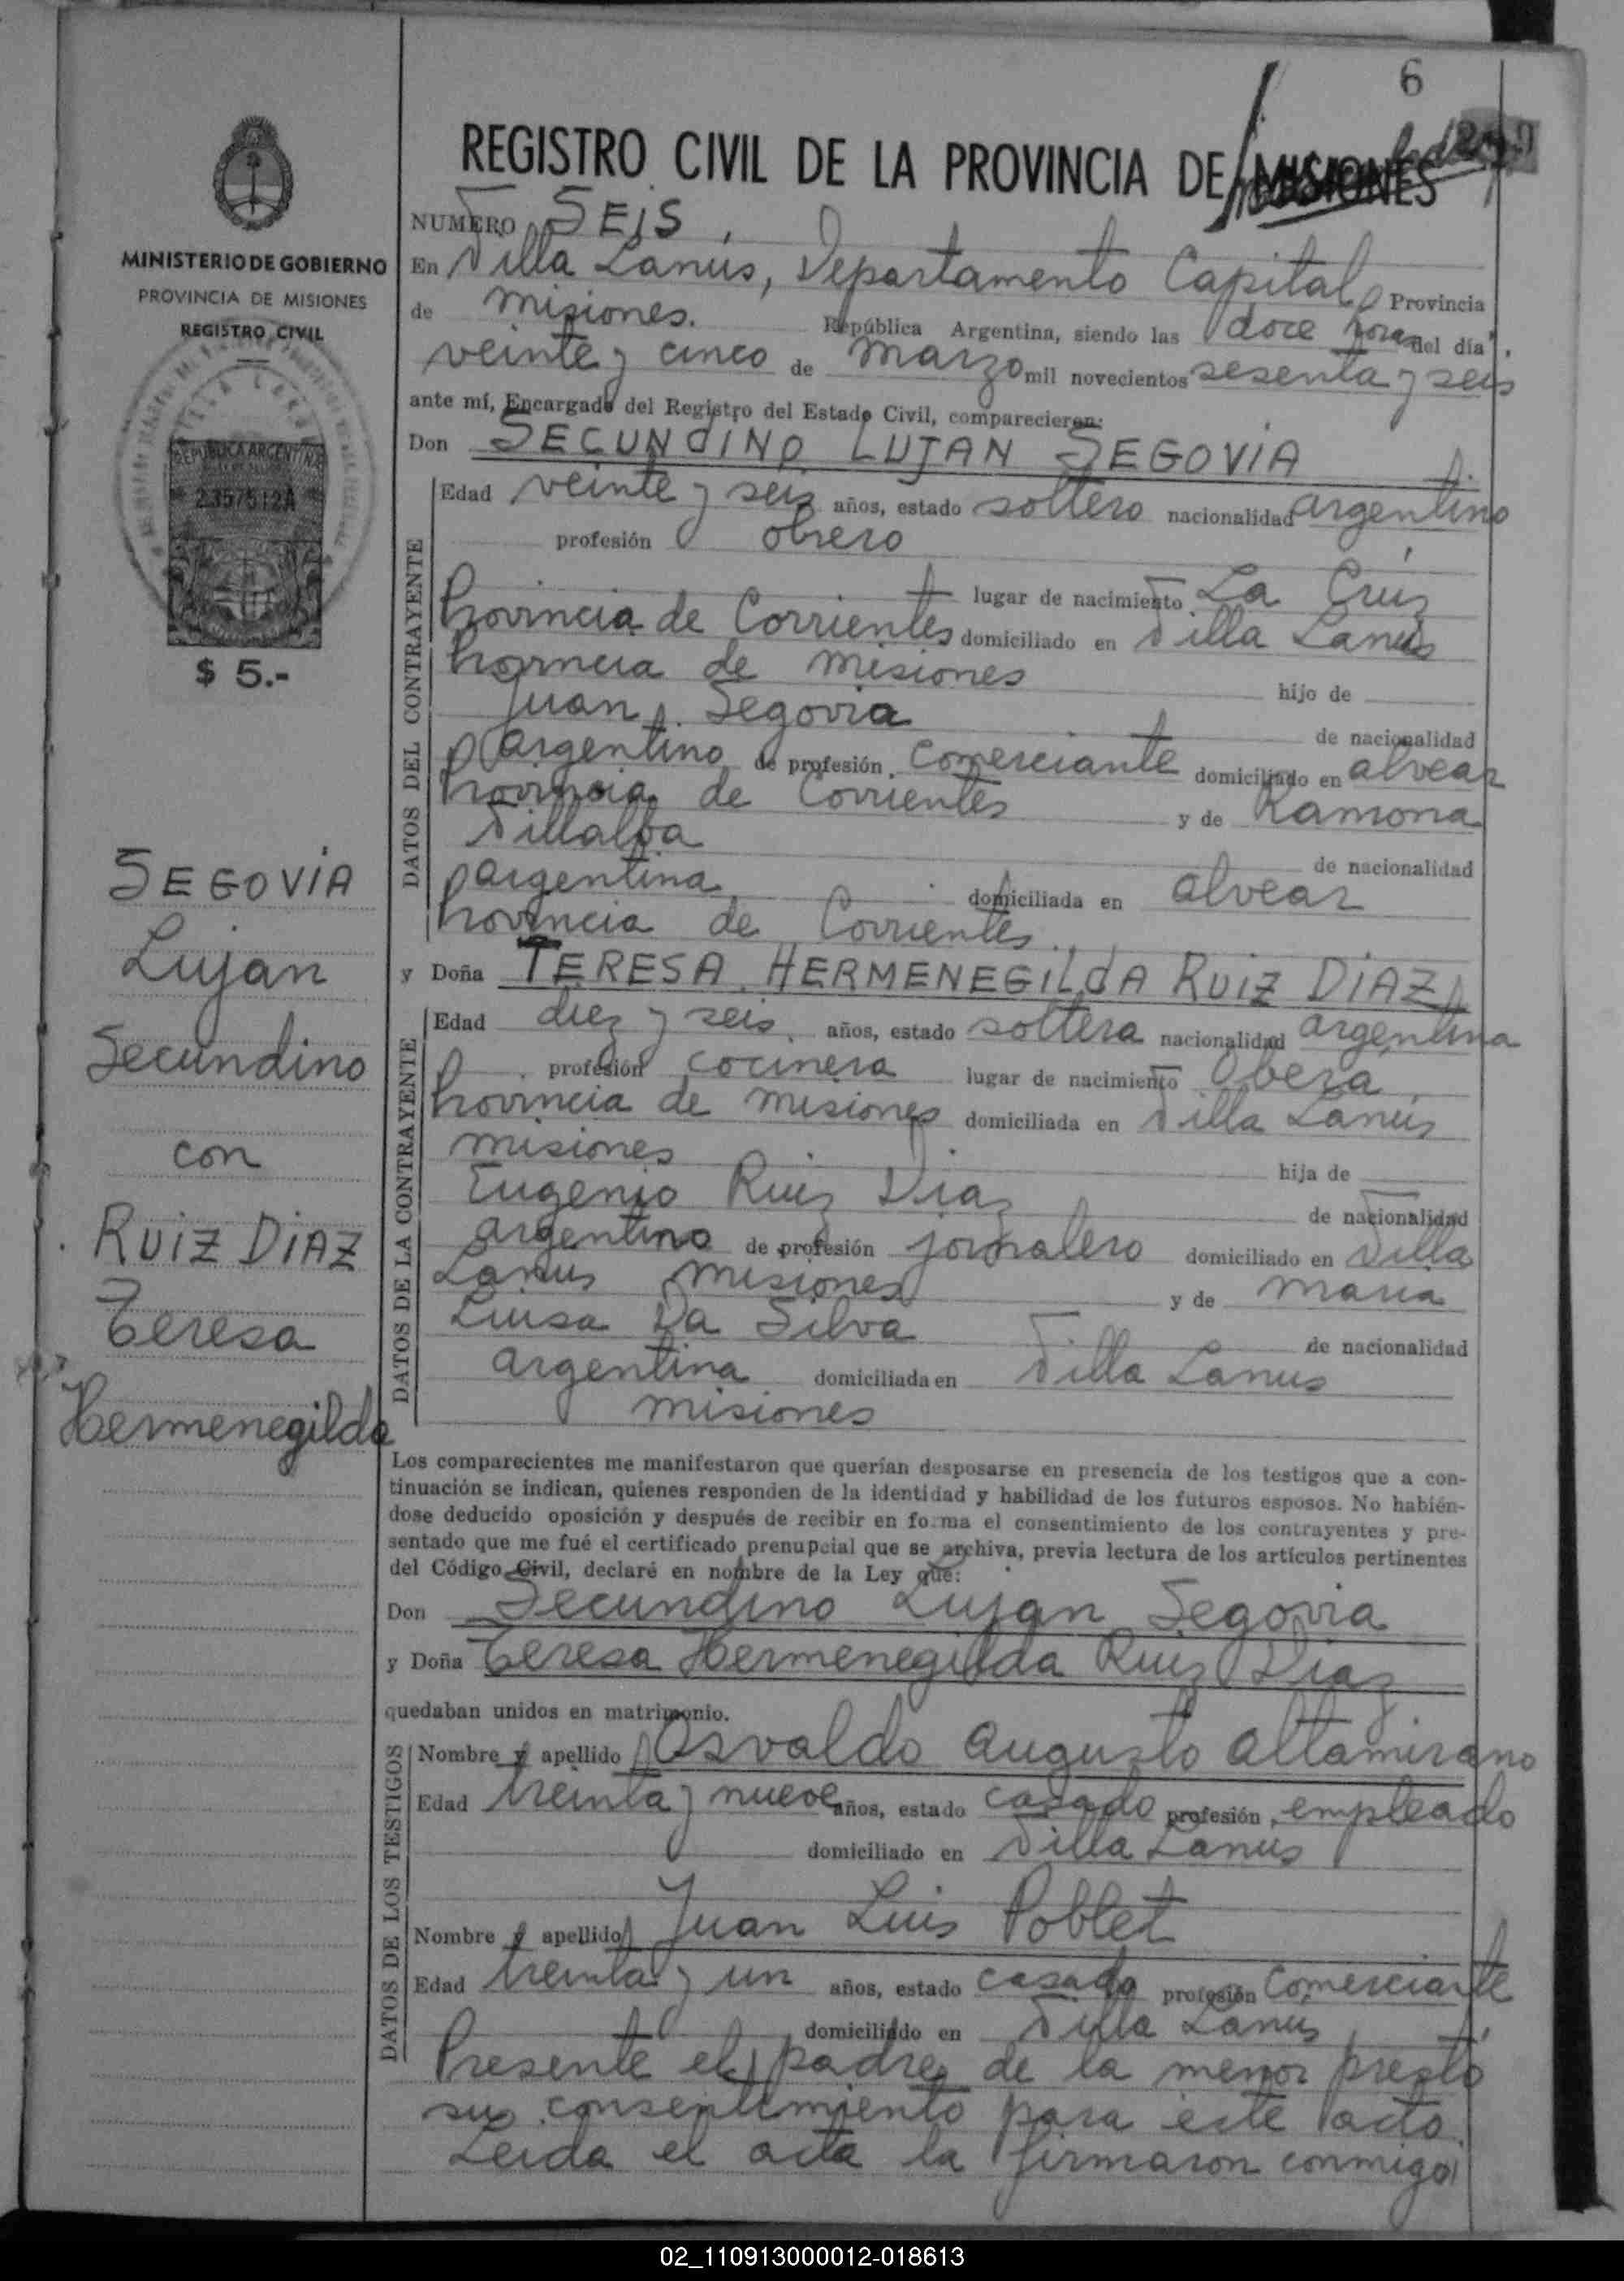 6
REGISTRO CIVIL DE LA PROVINCIA DE MISIONES
MINISTERIO DE GOBIERNO
PROVINCIA DE MISIONES
REGISTRO CIVIL
REPUBLICA ARGENTINA
2357512A
$ 5.-
SEGOVIA
Lujan
Secundino
con
RUIZ DIAZ
Teresa
Hermenegilda
NUMERO SEIS,
En Villa Lanus, Departamento Capital Provincia
de Misiones. República Argentina, siendo las doce horas del día
veinte y cinco de Marzo mil novecientos sesenta y seis
ante mí, Encargado del Registro del Estado Civil, comparecieron:
Don SECUNDINO LUJAN SEGOVIA
DATOS DEL CONTRAYENTE
Edad veinte y seis años, estado soltero nacionalidad argentino
profesión obrero
lugar de nacimiento La Cruz
Provincia de Corrientes domiciliado en Villa Lanús
Provincia de Misiones hijo de
Juan Segovia de nacionalidad
argentino de profesión comerciante domiciliado en alvear
Provincia de Corrientes y de Ramona
Villalba de nacionalidad
argentina domiciliada en alvear
Provincia de Corrientes.
y Doña TERESA HERMENEGILDA RUIZ DIAZ
DATOS DE LA CONTRAYENTE
Edad diez y seis años, estado soltera nacionalidad argentina
profesión cocinera lugar de nacimiento Oberá
Provincia de Misiones domiciliada en Villa Lanús
Misiones hija de
Eugenio Ruiz Diaz de nacionalidad
argentino de profesión jornalero domiciliado en Villa
Lanus Misiones y de Maria
Luisa Da Silva de nacionalidad
argentina domiciliada en Villa Lanus
Misiones
Los comparecientes me manifestaron que querían desposarse en presencia de los testigos que a con-
tinuación se indican, quienes responden de la identidad y habilidad de los futuros esposos. No habién-
dose deducido oposición y después de recibir en forma el consentimiento de los contrayentes y pre-
sentado que me fué el certificado prenupcial que se archiva, previa lectura de los artículos pertinentes
del Código Civil, declaré en nombre de la Ley que:
Don Secundino Lujan Segovia
y Doña Teresa Hermenegilda Ruiz Diaz
quedaban unidos en matrimonio.
DATOS DE LOS TESTIGOS
Nombre y apellido Osvaldo Augusto Altamirano
Edad treinta y nueve años, estado casado profesión, empleado
domiciliado en Villa Lanus
Nombre y apellido Juan Luis Poblet
Edad treinta y un años, estado casado profesión Comerciante
domiciliado en Villa Lanús
Presente el padre de la menor prestó
su consentimiento para este acto.
Leida el acta la firmaron conmigo
02_110913000012-018613